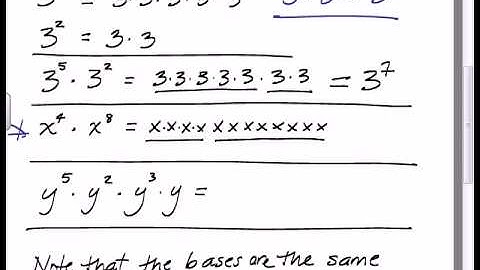 3² = 3·3
3⁵·3² = 3·3·3·3·3·3·3 = 3⁷
x⁴·x⁸ = x·x·x·x xxxxxxxx
y⁵·y²·y³·y =
Note that the bases are the same